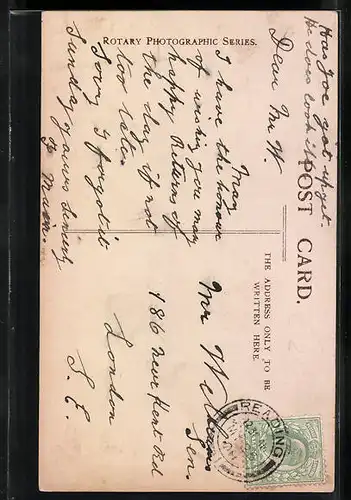 Has Joe got up yet.
he does look ill
Dear Mr W.
May
I have the honour
of wishing you many
happy Returns of
the day if not
too late.
Sorry I forgot it
Sunday yours sincerely
ROTARY PHOTOGRAPHIC SERIES.
POST CARD.
THE ADDRESS ONLY TO BE
WRITTEN HERE.
Mr Williams
Sen.
186 New Kent Rd
London
S.E.
READING